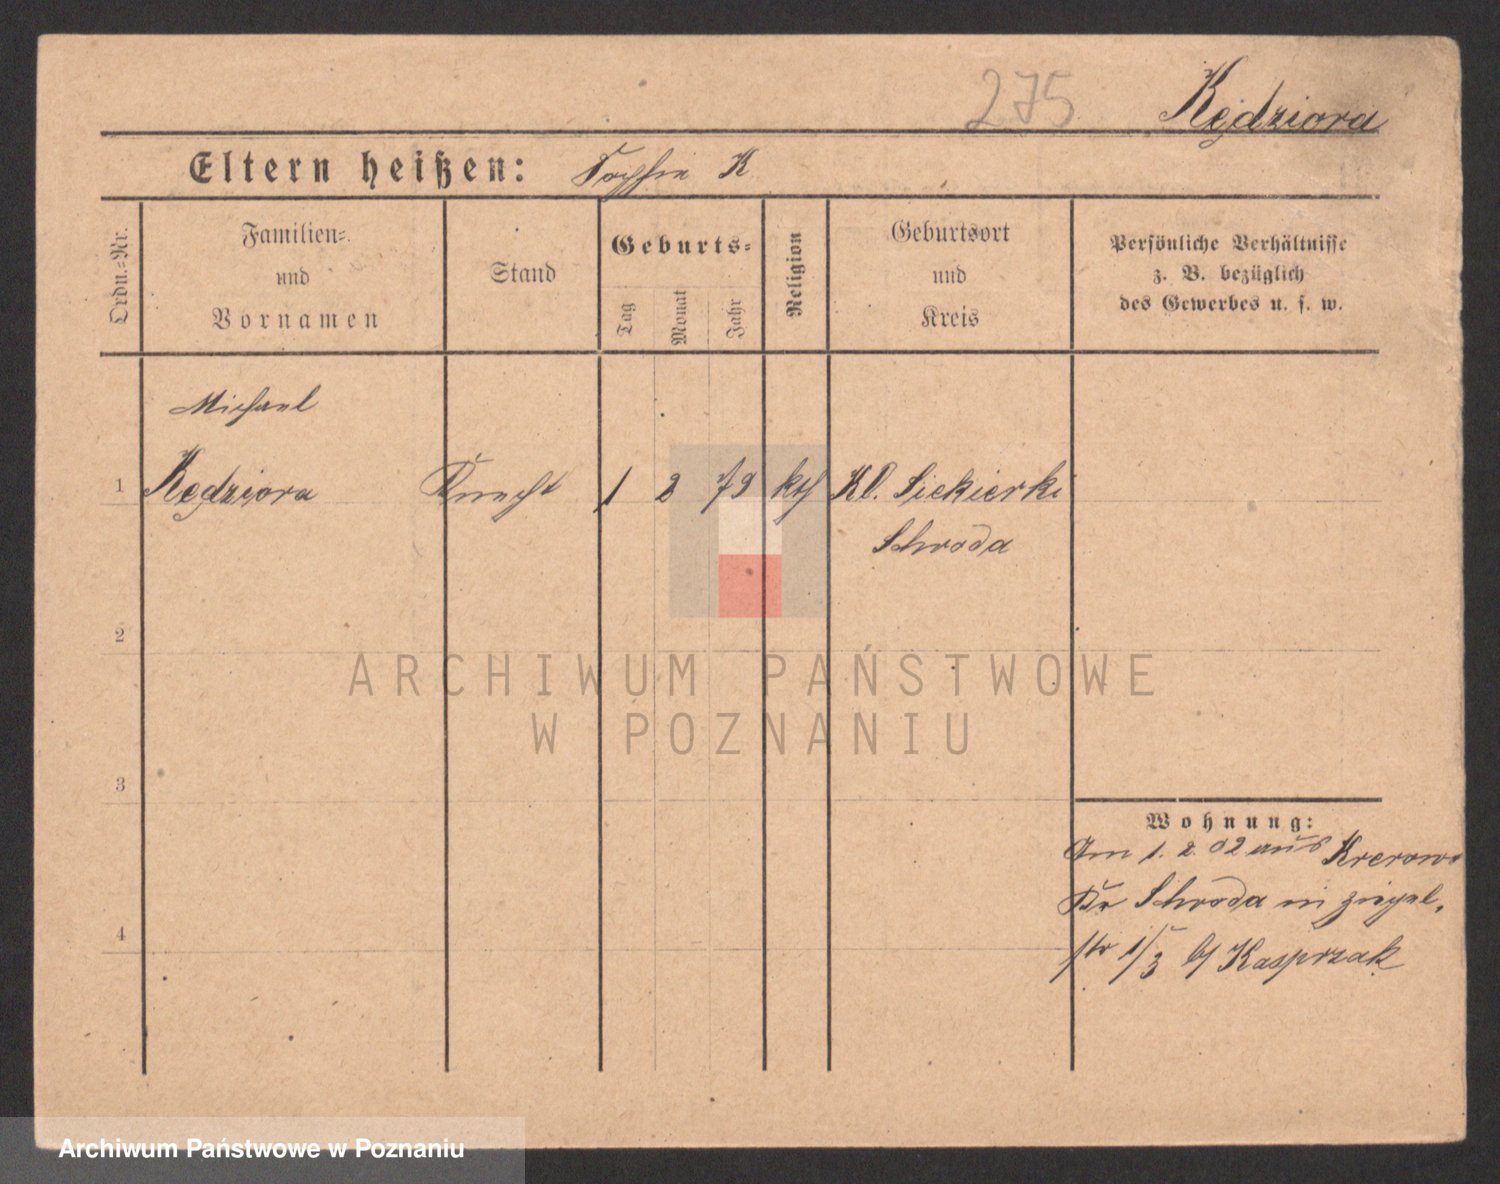 275 Kędziora
Eltern heißen: Sophie K
Ordn.=Nr.
Familien=
und
Vornamen
Stand
Geburts=
Tag
Monat
Jahr
Religion
Geburtsort
und
Kreis
Persönliche Verhältnisse
z. B. bezüglich
des Gewerbes u. s. w.
Michael
1 Kędziora Knecht 1 2 79 kth Kl. Siekierki
Schroda
2
ARCHIWUM PAŃSTWOWE
W POZNANIU
3
Wohnung:
Am 1. 2. 02 aus Krerowo
Kr Schroda in Ziegel,
str 1/3 b/ Kasprzak
4
Archiwum Państwowe w Poznaniu